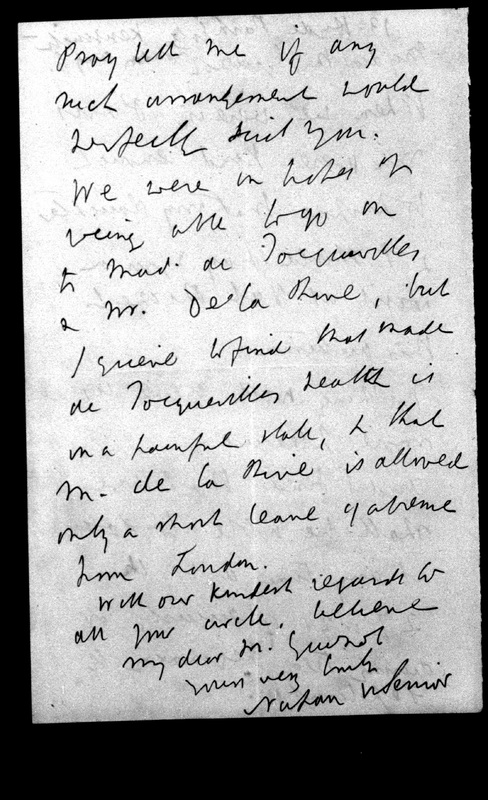 Pray tell me if any
such arrangement would
perfectly suit you.
We were in hopes of
being able to go on
to Mad. de Tocquevilles
& Mr. De la Rive, but
I grieve to find that Made
de Tocquevilles health is
in a painful state, & that
M. de la Rive is allowed
only a short leave of absence
from London.
With our kindest regards to
all your circle, believe
my dear M. Guizot
yours very truly
Nassau W Senior